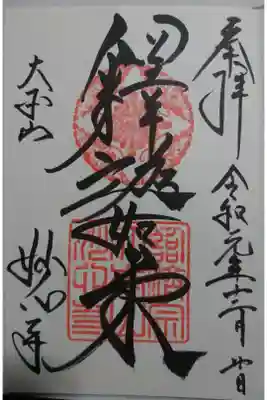 奉拝 令和元年 月廿日
釋迦如来
大本山 妙心寺